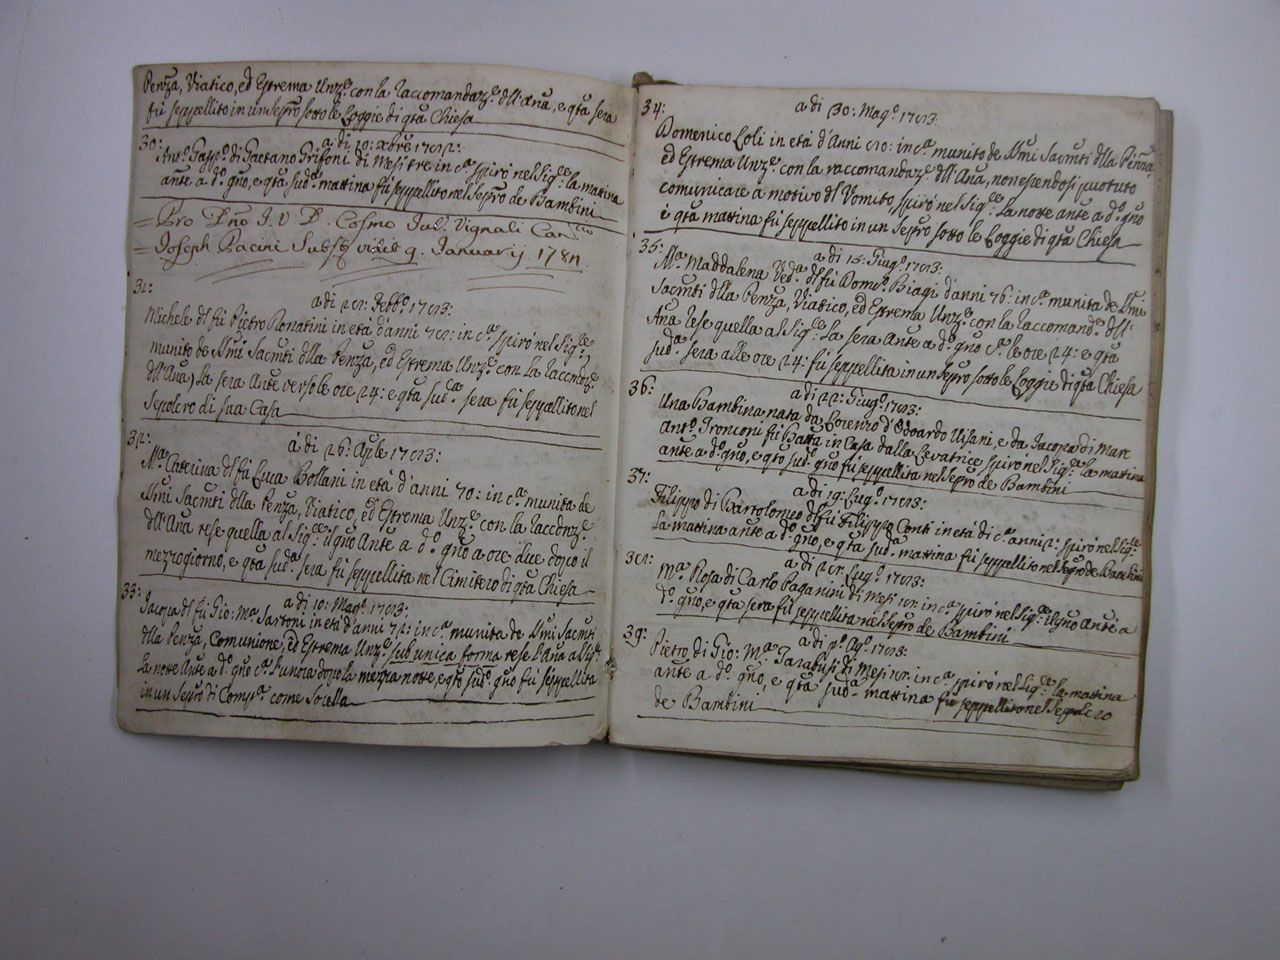 Penza, Viatico, ed Estrema Unz.e con la Raccomandaz.e dll'Ana, e qta sera
fù seppellito in un Sepro sotto le Loggie di qta Chiesa
30: a dì 10: xbre
Ant.o Gasp.e di Gaetano Grifoni di Mesi tre in c.a spirò nel Sig.re la mattina
ante a d.o gno, e qta sud.a mattina fù seppellito nel Sepro de Bambini
= Pro Dno I. V. D. Cosmo Vignali
= Joseph Pacini 9. Januarij
31:
a dì Febb.o
Michele dl fù Pietro Donatini in età d'anni in c.a spirò nel Sig.re
munito de SSmi Sacmti dlla Penza, ed Estrema Unz.e con la Raccmdz.e
dll'Ana, la sera Ante verso le ore 24: e qta sud.a sera fù seppellito nel
Sepolcro di sua Casa
32:
à dì 26: Aple
M.a Caterina dl fù Luca Bollani in età d'anni 70: in c.a munita de
SSmi Sacmti dlla Penza, Viatico, ed Estrema Unz.e con la Raccdnz.e
dll'Ana rese quella al Sig.re il gno Ante a d.o gno a ore due dopo il
mezzogiorno, e qta sud.a sera fù seppellita nel Cimitero di qta Chiesa
33: a dì 10: Mag.o
Jacopa dl fù Gio: M.a Sartoni in età d'anni in c.a munita de SSmi Sacmti
dlla Penza, Comunione, ed Estrema Unz.e sub unica forma rese l'Ana al Sig.re
la notte Ante a d.o gno c.a l'una dopo la mezza notte, e qto sud.o gno fù seppellita
in un Sepro di Comp.a come Sorella
34: a dì 30: Mag.o
Domenico Loli in età d'Anni in c.a munito de SSmi Sacmti dlla Penza
ed Estrema Unz.e con la raccomandaz.e dll'Ana, non essendosi puotuto
comunicare à motivo dl Vomito, spirò nel Sig.re la notte ante a d.o gno
e qta mattina fù seppellito in un Sepro sotto le Loggie di qta Chiesa
35: a dì 15: Giug.o
M.a Maddalena Ved.a dl fù Dom.co Biagi d'anni 76: in c.a munita de SSmi
Sacmti dlla Penza, Viatico, ed Estrema Unz.e con la Raccomand.e dll'
Ana rese quella al Sig.re la sera Ante a d.o gno c.a le ore 24: e qta
sud.a sera alle ore 24: fù seppellita in un Sepro sotto le Loggie di qta Chiesa
36: a dì 22: Giug.o
Una Bambina nata da Lorenzo d'Odoardo Visani, e da Jacopa di Marc
Ant.o Tronconi fù Batta in Casa dalla Levatrice spirò nel Sig.re la mattina
ante a d.o gno, e qto sud.o gno fù seppellita nel Sepro de Bambini
37: a dì 19: Lug.o
Filippo di Bartolomeo dl fù Filippo Conti in età di c.a anni 2: spirò nel Sig.re
la mattina ante a d.o gno, e qta sud.a mattina fù seppellito nel Sepro de Bambini
a dì Lug.o
M.a Rosa di Carlo Paganini di Mesi in c.a spirò nel Sig.re il gno Ante a
d.o gno, e qta sera fù seppellita nel Sepro de Bambini
39: a dì 9: Ag.o
Pietro di Gio: M.a di Mesi in c.a spirò nel Sig.re la mattina
ante a d.o gno, e qta sud.a mattina fù seppellito nel Sepolcro
de Bambini